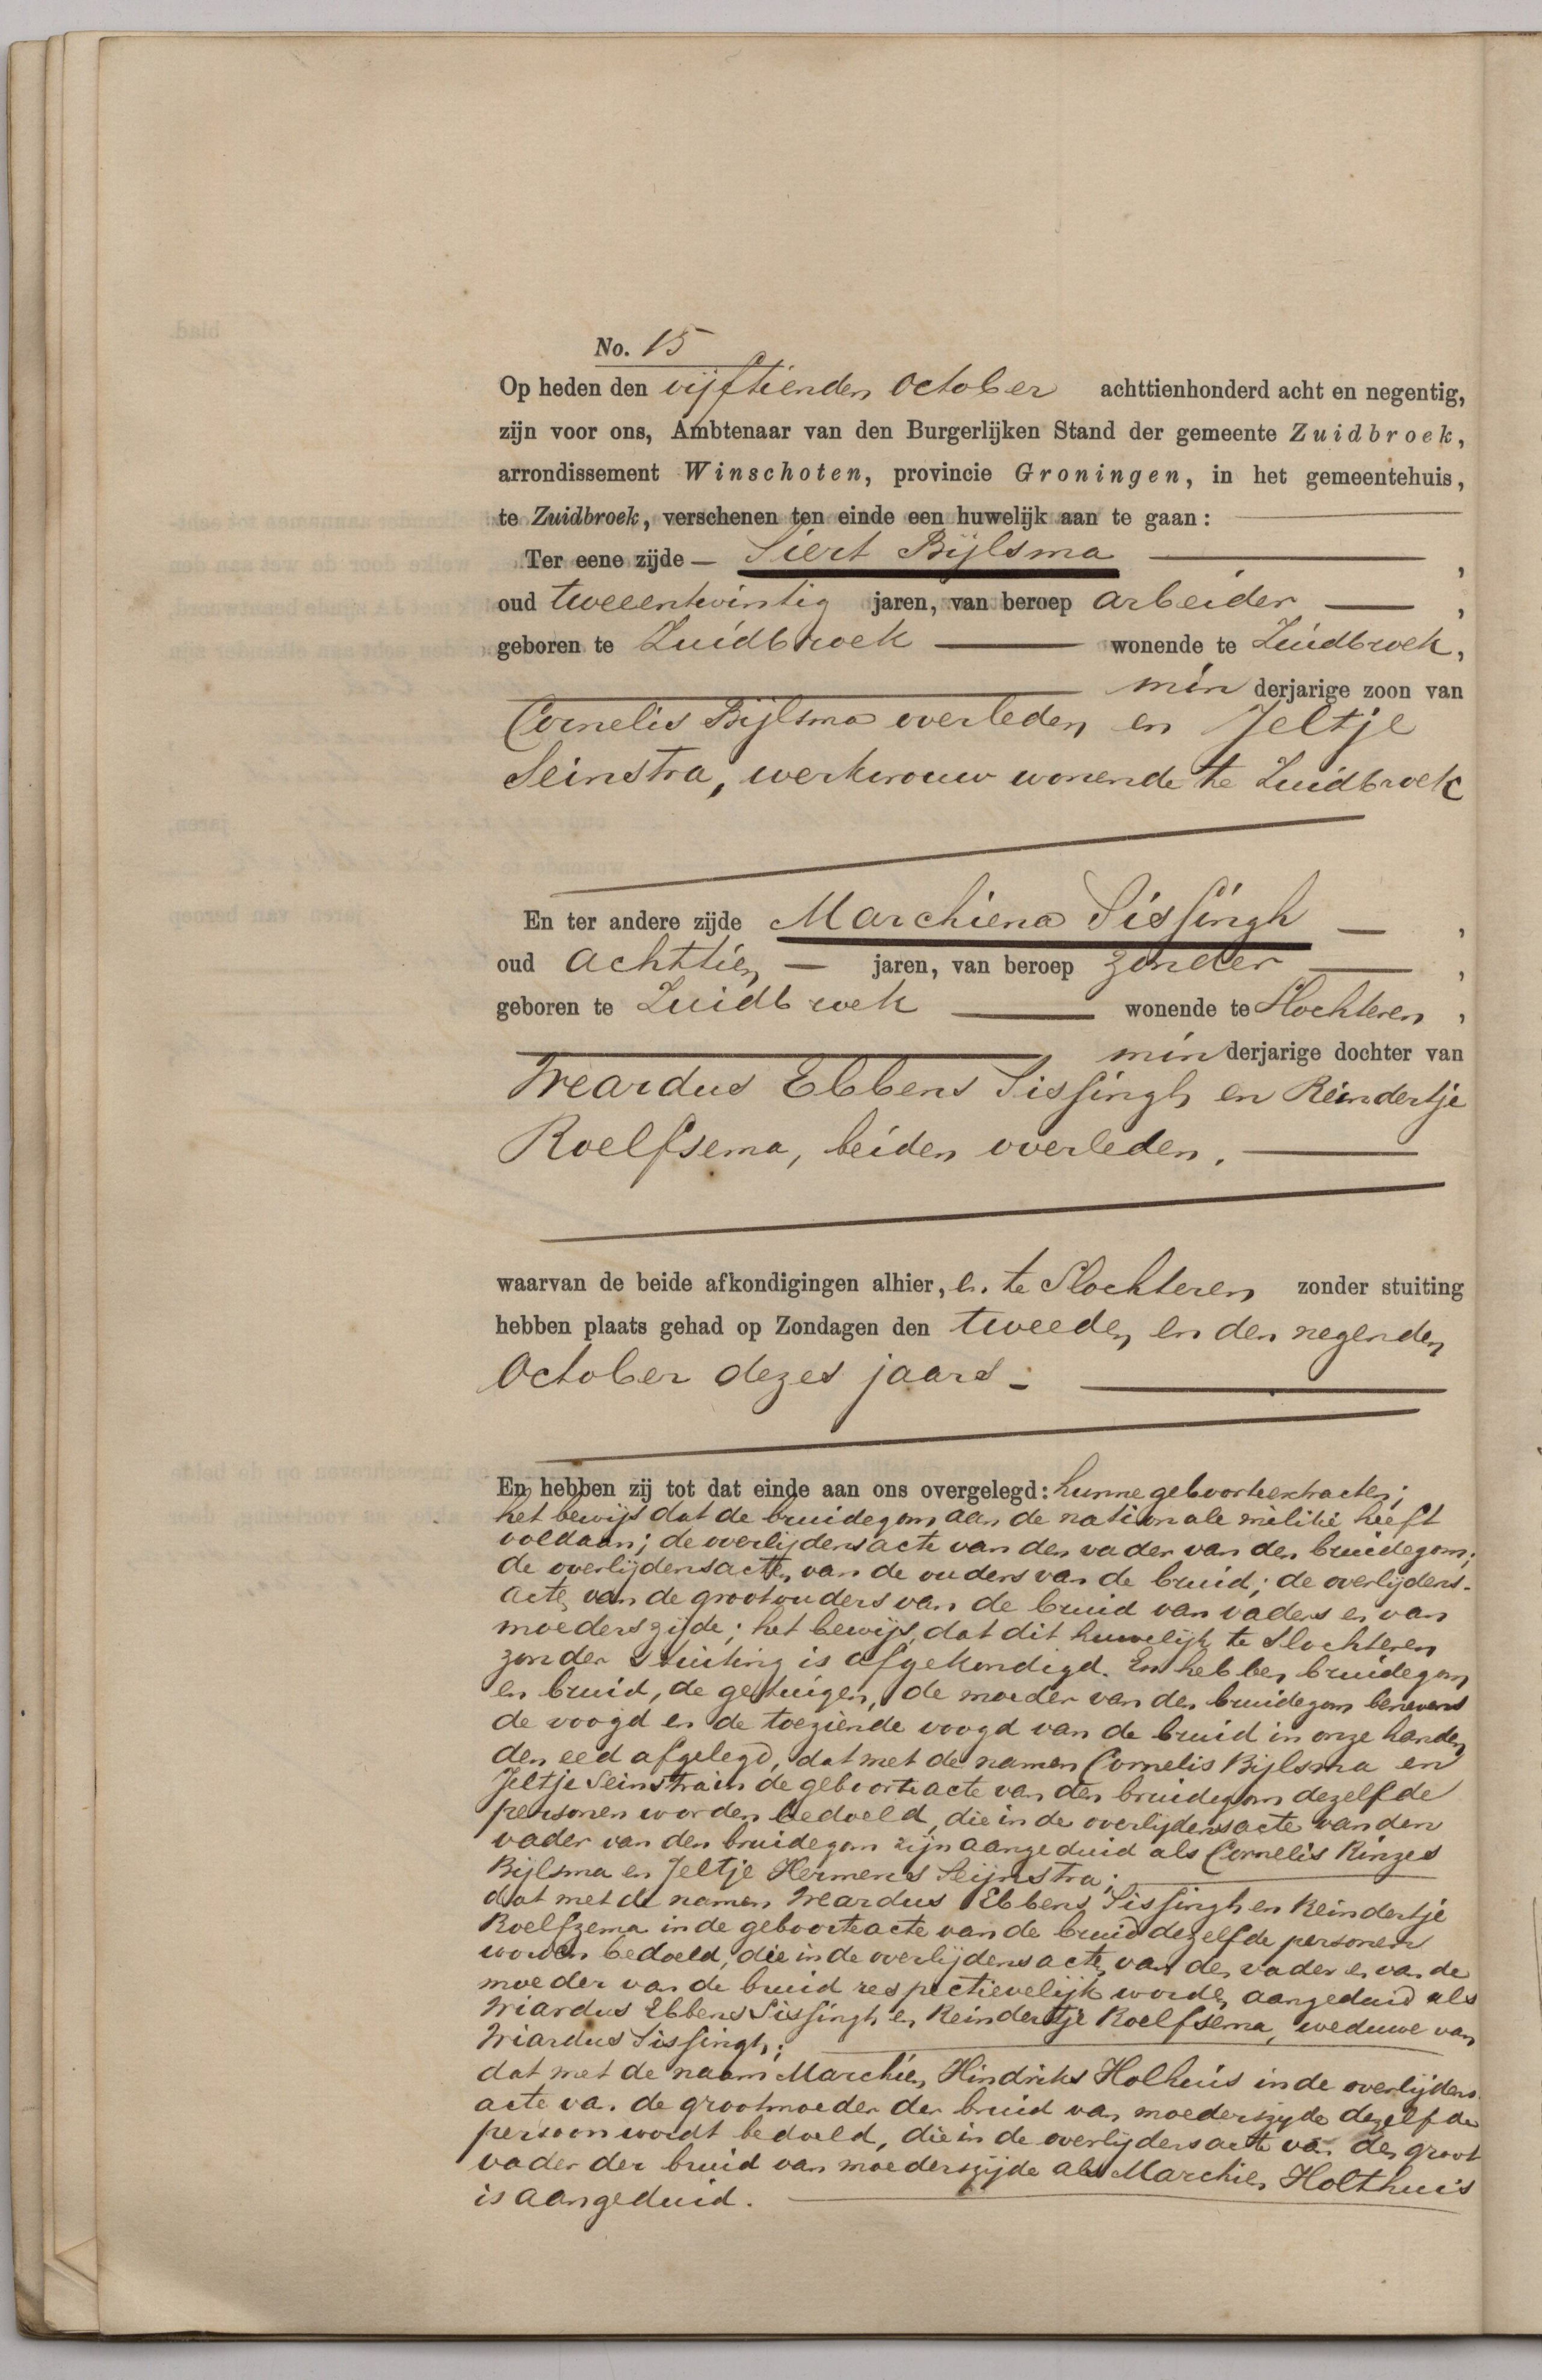 No. 15
Op heden den vijftienden October achttienhonderd acht en negentig,
zijn voor ons, Ambtenaar van den Burgerlijken Stand der gemeente Zuidbroek,
arrondissement Winschoten, provincie Groningen, in het gemeentehuis,
te Zuidbroek, verschenen ten einde een huwelijk aan te gaan:
Ter eene zijde — Siert Bijlsma —,
oud tweeentwintig jaren, van beroep arbeider —,
geboren te Zuidbroek — wonende te Zuidbroek,
minderjarige zoon van
Cornelis Bijlsma overleden en Jeltje
Seinstra, werkvrouw wonende te Zuidbroek
En ter andere zijde Marchiena Sissingh —,
oud achttien — jaren, van beroep zonder —,
geboren te Zuidbroek — wonende te Slochteren,
minderjarige dochter van
Weardus Ebbens Sissingh en Reindertje
Roelfsema, beiden overleden. —
waarvan de beide afkondigingen alhier, en te Slochteren zonder stuiting
hebben plaats gehad op Zondagen den tweeden en den negenden
October dezes jaars. —
En hebben zij tot dat einde aan ons overgelegd: hunne geboorteextracten;
het bewijs dat de bruidegom aan de nationale militie heeft
voldaan; de overlijdensacte van den vader van den bruidegom;
de overlijdensacten van de ouders van de bruid; de overlijdens-
acten van de grootouders van de bruid van vaders en van
moederszijde; het bewijs, dat dit huwelijk te Slochteren
zonder stuiting is afgekondigd. En hebben bruidegom
en bruid, de getuigen, de moeder van den bruidegom benevens
de voogd en de toeziende voogd van de bruid in onze handen
den eed afgelegd, dat met de namen Cornelis Bijlsma en
Jeltje Seinstra in de geboorteacte van den bruidegom dezelfde
personen worden bedoeld, die in de overlijdensacte van den
vader van den bruidegom zijn aangeduid als Cornelis Rinzes
Bijlsma en Jeltje Hermens Seijnstra; —
dat met de namen Weardus Ebbens Sissingh en Reindertje
Roelfzema in de geboorteacte van de bruid dezelfde personen
worden bedoeld, die in de overlijdensacten van den vader en van de
moeder van de bruid respectievelijk worden aangeduid als
Wiardus Ebbens Sissingh en Reindertje Roelfsema, weduwe van
Wiardus Sissingh; —
dat met de naam Marchien Hindriks Holhuis in de overlijdens-
acte van de grootmoeder der bruid van moederszijde dezelfde
persoon wordt bedoeld, die in de overlijdensacte van den groot
vader der bruid van moederszijde als Marchien Holthuis
is aangeduid. —